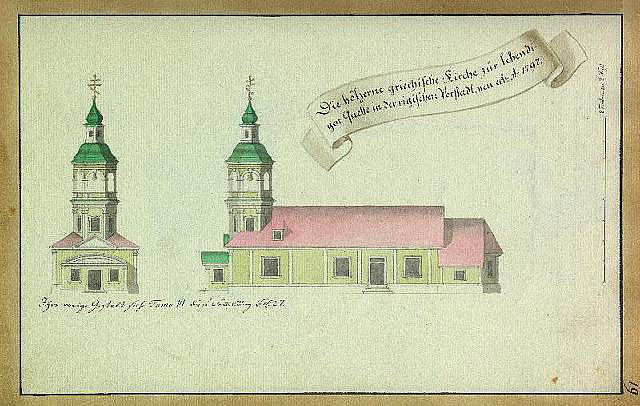 Die hölzerne griechische Kirche zur lebendi-
gen Quelle in der rigischen Vorstadt, neu erb. A. 1797.
Ihre vorige Gestalt sieh Tomo VI dieser Sammlung
61